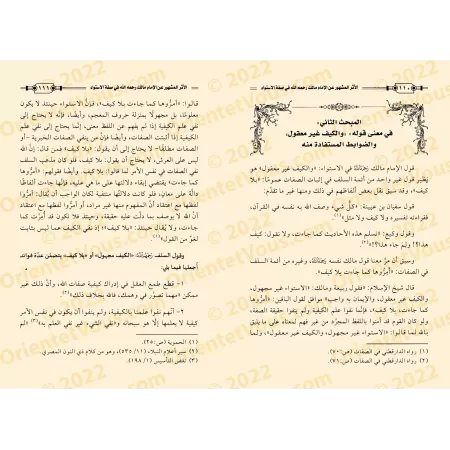 ١١٠ الأثر المشهور عن الإمام مالك رحمه الله في صفة الاستواء
المبحث الثاني:
في معنى قوله، «والكيف غير معقول»،
والضوابط المستفادة منه
قول الإمام مالك رحمه الله في الاستواء: «والكيف غير معقول» هو
نظير قول غير واحد من أئمة السلف في إثبات الصفات عمومًا: «بلا
كيف»، وقد سبق نقل بعض ألفاظهم في ذلك ومنها غير ما تقدّم:
قول سفيان بن عيينة: «كلّ شيء وصف الله به نفسه في القرآن،
فقراءته تفسيره ولا كيف ولا مثل»(١).
وقول وكيع: «نسلم هذه الأحاديث كما جاءت، ولا نقول: كيف
هذا؟! ولم جاء هذا؟!»(٢).
قال شيخ الإسلام: «فقول ربيعة ومالك: «الاستواء غير مجهول،
والكيف غير معقول، والإيمان به واجب» موافق لقول الباقين: «أمرّوها
كما جاءت بلا كيف»، فإنّما نفوا علم الكيفية ولم ينفوا حقيقة الصفة،
ولو كان القوم قد آمنوا باللفظ المجرّد من غير فهم لمعناه على ما يليق
بالله لما قالوا: «الاستواء غير مجهول، والكيف غير معقول»، ولما
(١) رواه الدارقطني في الصفات (ص:٧٠)
(٢) رواه الدارقطني في الصفات (ص:٧١)
الأثر المشهور عن الإمام مالك رحمه الله في صفة الاستواء ١١١
قالوا: «أمرّوها كما جاءت بلا كيف»، فإنّ الاستواء حينئذ لا يكون
معلومًا، بل مجهولًا بمنزلة حروف المعجم، وأيضًا، فإنّه لا يحتاج إلى
نفي علم الكيفية إذا لم يفهم عن اللفظ معنى، إنّما يحتاج إلى نفي علم
الكيفية إذا أثبتت الصفات، وأيضًا فإنّ من ينفي الصفات الخبرية أو
الصفات مطلقًا لا يحتاج إلى أن يقول: «بلا كيف» فمن قال: إنّ الله
ليس على العرش، لا يحتاج أن يقول: بلا كيف، فلو كان مذهب السلف
نفي الصفات في نفس الأمر لما قالوا: بلا كيف. وأيضًا فقولهم: «أمرّوها
كما جاءت» يقتضي إبقاء دلالتها على ما هي عليه، فإنّها جاءت ألفاظًا
دالّة على معان، فلو كانت دلالتها منتفية لكان الواجب أن يقال: أمرّوا
لفظها مع اعتقاد أنّ المفهوم منها غير مراد، أو أمرّوا لفظها مع اعتقاد
أنّ الله لا يوصف بما دلّت عليه حقيقة، وحينئذ فلا تكون قد أمرّت كما
جاءت، ولا يقال حينئذ: «بلا كيف»؛ إذ نفي الكيف عما ليس بثابت
لغو من القول»(١).
وقول السلف «الكيف مجهول» أو «بلا كيف» يتضمن عدّة فوائد
أجملها فيما يلي:
١ - قطع طمع العقل في إدراك كيفية صفات الله، وأنّ ذلك غير
ممكن «مهما تصوّر في وهمك، فالله بخلاف ذلك»(٢).
٢ - أنّهم نفوا علمنا بالكيفية، ولم ينفوا أن يكون في نفس الأمر
كيفية لا يعلمها إلّا هو سبحانه «ونفي الشيء غير نفي العلم به»(٣) لم
(١) الحموية (ص:٢٥).
(٢) سير أعلام النبلاء (١١/ ٥٣٥)، وهو من كلام ذي النون المصري.
(٣) نقض التأسيس (١/ ١٩٨)
Orientetvous.com © 2022